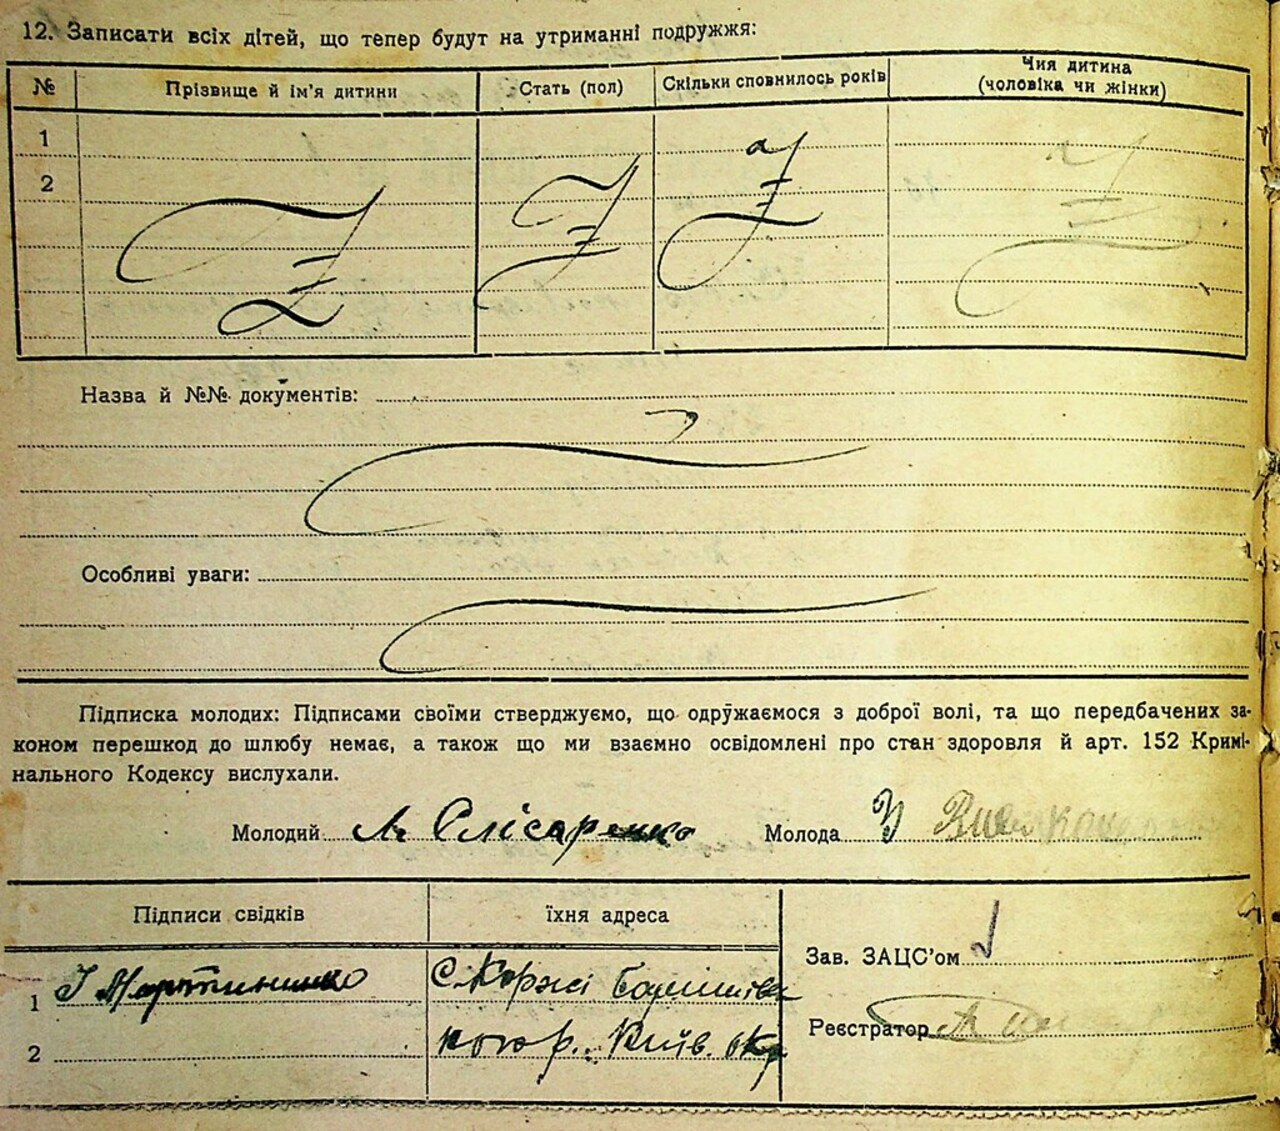 12. Записати всіх дітей, що тепер будут на утриманні подружжя:
№ Прізвище й ім'я дитини Стать (пол) Скільки сповнилось років Чия дитина (чоловіка чи жінки)
1
2
Назва й №№ документів:
Особливі уваги:
Підписка молодих: Підписами своїми стверджуємо, що одружаємося з доброї волі, та що передбачених за-
коном перешкод до шлюбу немає, а також що ми взаємно освідомлені про стан здоровля й арт. 152 Кримі-
нального Кодексу вислухали.
Молодий Слісаренко Молода
Підписи свідків їхня адреса
Зав. ЗАЦС'ом
1 І Мартиненко С Коржі
Реєстратор
2 Київ. окр